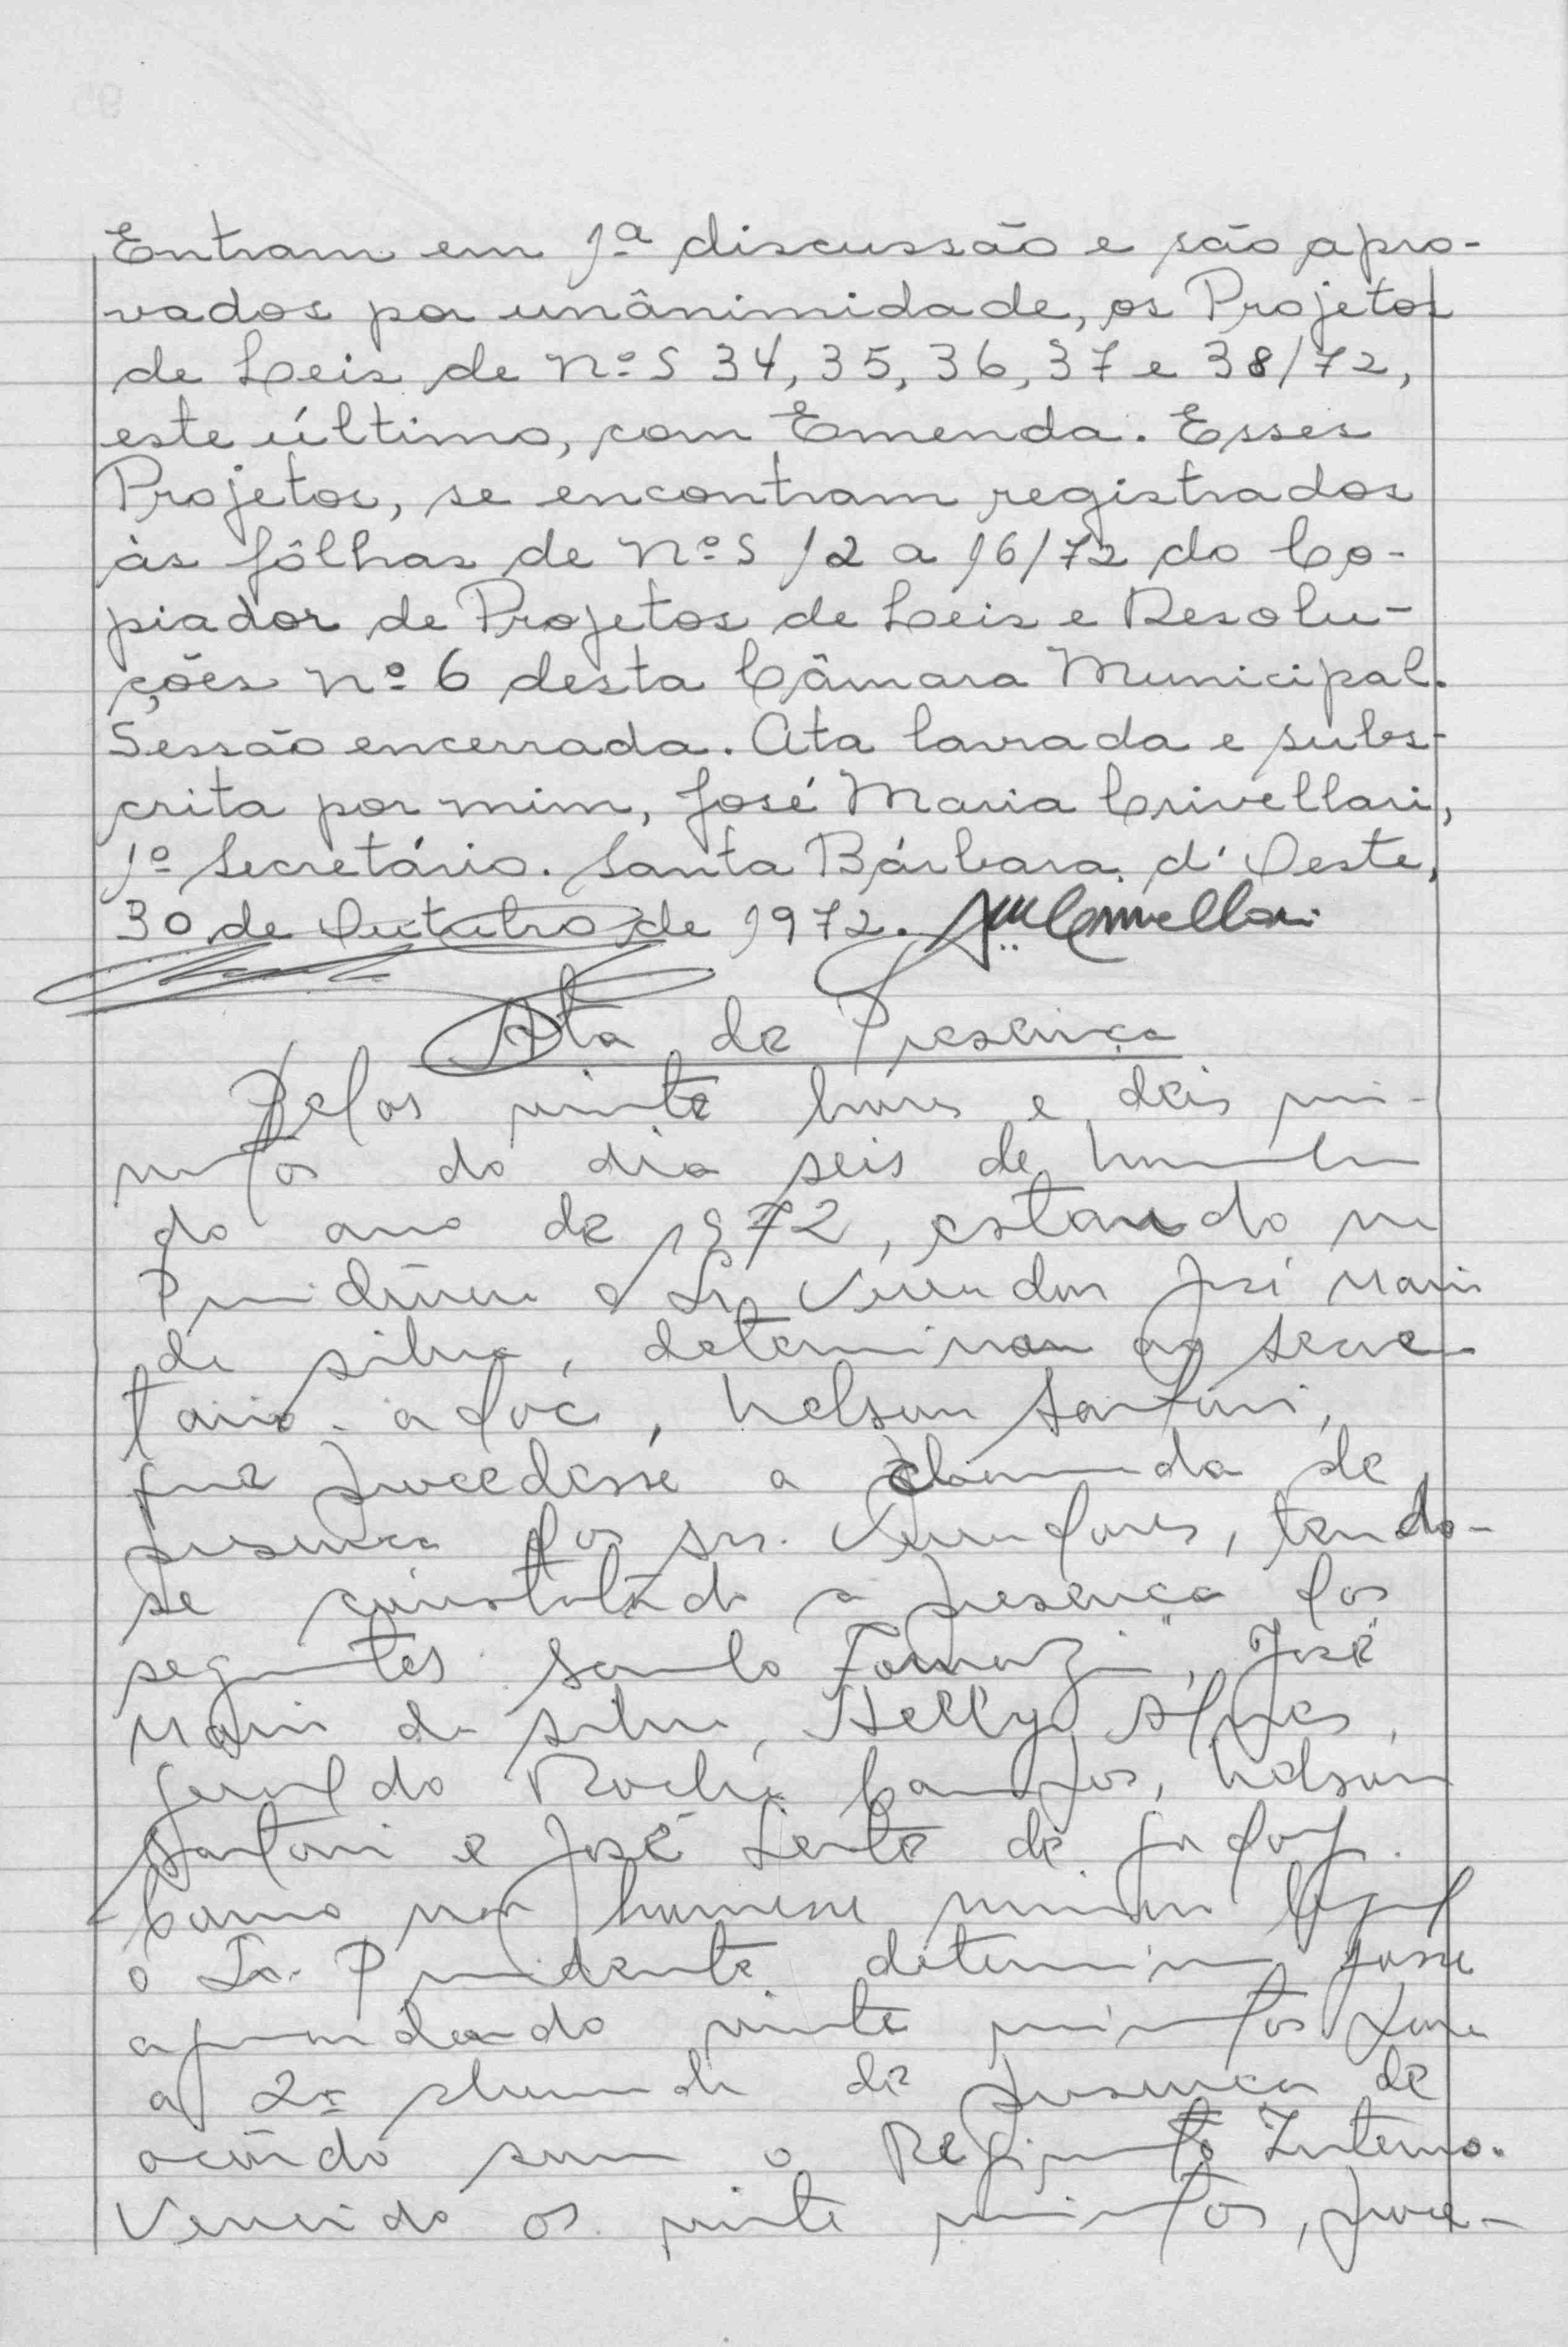 Entram em 1ª discussão e são apro-
vados por unânimidade, os Projetos
de Leis de Nºs 34, 35, 36, 37 e 38/72,
este último, com Emenda. Esses
Projetos, se encontram registrados
às fôlhas de Nºs 12 a 16/72 do Co-
piador de Projetos de Leis e Resolu-
ções Nº 6 desta Câmara Municipal.
Sessão encerrada. Ata lavrada e subs-
crita por mim, José Maria Crivellari,
1º Secretário. Santa Bárbara d'Oeste,
30 de Outubro de 1972. Crivellari
Ata de Presença
Pelas vinte horas e dois mi-
nutos do dia seis de novembro
do ano de 1972, estando na
Presidência o Sr. Vereador José Maria
da Silva, determinou ao secre-
tario adoc, Nelson Santoni,
que procedesse a chamada de
presença dos srs. Vereadores, tendo-
se constatado a presença dos
seguintes: José
Maria da Silva, Helly Alpes,
Geraldo Rocha Campos, Nelson
Santoni e José Leite de Godoy.
Como não houvesse número legal
o Sr. Presidente determinou fosse
aguardado vinte minutos para
a 2ª chamada de presença de
acôrdo com o Regimento Interno.
Vencido os vinte minutos, proce-